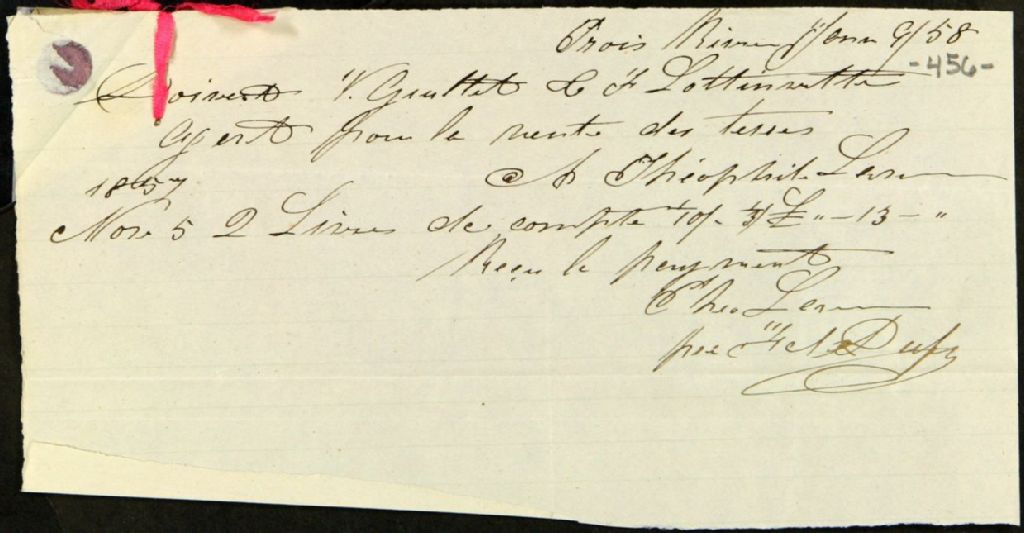 Trois Rivier Janr 9/58
-456-
Doivent V. Guillet & F Lottinville
Agent pour la vente des terres
A Théophile
1857
Nov. 5 2 Livres de compte £ " - 13 - "
Reçu le payment
Theo
per